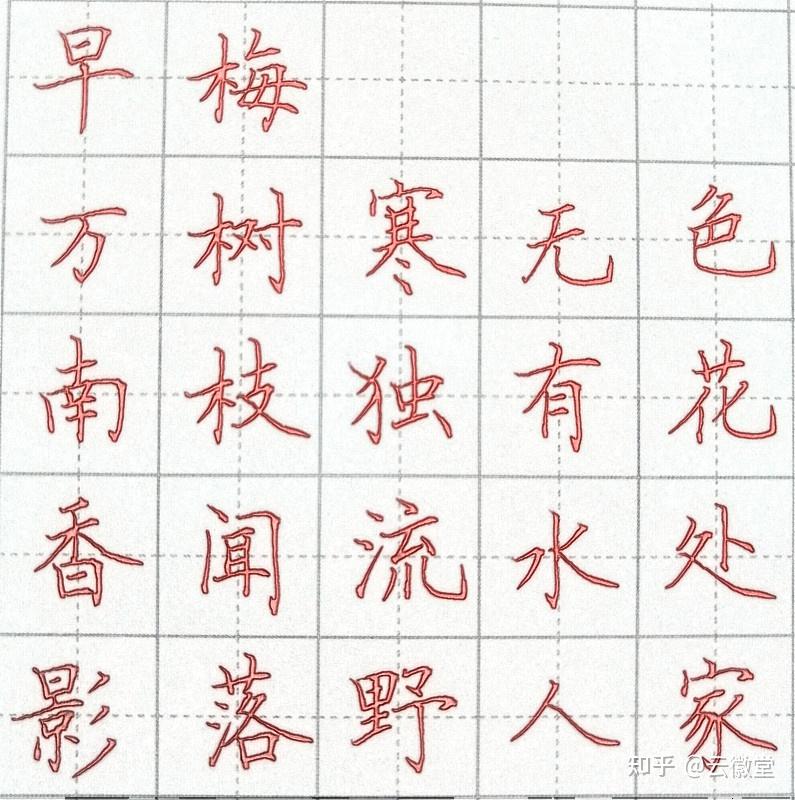 早梅
万树寒无色
南枝独有花
香闻流水处
影落野人家
知乎 @云徽堂